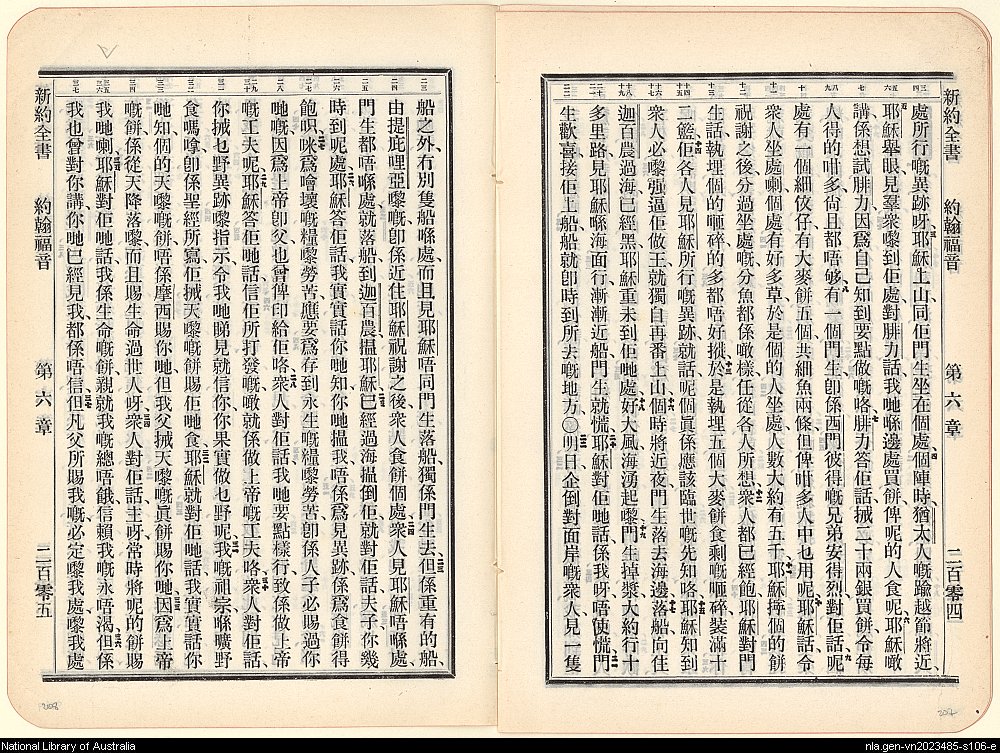 新約全書 約翰福音 第六章 二百零四
處所行嘅異跡呀耶穌上山同佢門生坐在個處個陣時猶太人嘅踰越節將近
耶穌舉眼見羣衆嚟到佢處對腓力話我哋喺邊處買餅俾呢的人食呢耶穌噉
講係想試腓力因爲自己知到要點做嘅咯腓力答佢話搣二十兩銀買餅令每
人得的咁多尙且都唔够有一個門生卽係西門彼得嘅兄弟安得烈對佢話呢
處有一個細伩仔有大麥餅五個共細魚兩條但俾咁多人中乜用呢耶穌話令
衆人坐處喇個處有好多草於是個的人坐處人數大約有五千耶穌揸個的餅
祝謝之後分過坐處嘅分魚都係噉樣任從各人所想衆人都已經飽耶穌對門
生話執埋個的𠵇碎的多都唔好摐於是執埋五個大麥餅食剩嘅𠵇碎裝滿十
二籃佢各人見耶穌所行嘅異跡就話呢個眞係應該臨世嘅先知咯耶穌知到
衆人必嚟强逼佢做王就獨自再番上山個時將近夜門生落去海邊落船向住
迦百農過海已經黑耶穌重未到佢哋處好大風海湧起嚟門生掉槳大約行十
多里路見耶穌喺海面行漸漸近船門生就慌耶穌對佢哋話係我呀唔使慌門
生歡喜接佢上船船就卽時到所去嘅地方〇明日企倒對面岸嘅衆人見一隻
新約全書 約翰福音 第六章 二百零五
船之外冇別隻船喺處而且見耶穌唔同門生落船獨係門生去但係重有的船
由提庇哩亞嚟嘅卽係近住耶穌祝謝之後衆人食餅個處衆人見耶穌唔喺處
門生都唔喺處就落船到迦百農搵耶穌已經過海搵倒佢就對佢話夫子你幾
時到呢處耶穌答佢話我實實話你哋知你哋搵我唔係爲見異跡係爲食餅得
飽啫咪爲噲壞嘅糧嚟勞苦應要爲存到永生嘅糧嚟勞苦卽係人子必賜過你
哋嘅因爲上帝卽父也曾俾印給佢咯衆人對佢話我哋要點樣行致係做上帝
嘅工夫呢耶穌答佢哋話信佢所打發嘅噉就係做上帝嘅工夫咯衆人對佢話
你搣乜野異跡嚟指示令我哋睇見就信你你果實做乜野呢我嘅祖宗喺曠野
食嗎嗱卽係聖經所寫佢搣天嚟嘅餅賜佢哋食耶穌就對佢哋話我實實話你
哋知個的天嚟嘅餅唔係摩西賜你哋但我父搣天嚟嘅眞餅賜你哋因爲上帝
嘅餅係從天降落嚟而且賜生命過世人呀衆人對佢話主呀常時將呢的餅賜
我哋喇耶穌對佢哋話我係生命嘅餅親就我嘅總唔餓信賴我嘅永唔渴但係
我也曾對你講你哋已經見我都係唔信但凡父所賜我嘅必定嚟我處嚟我處
208
207
National Library of Australia
nla.gen-vn2023485-s106-e